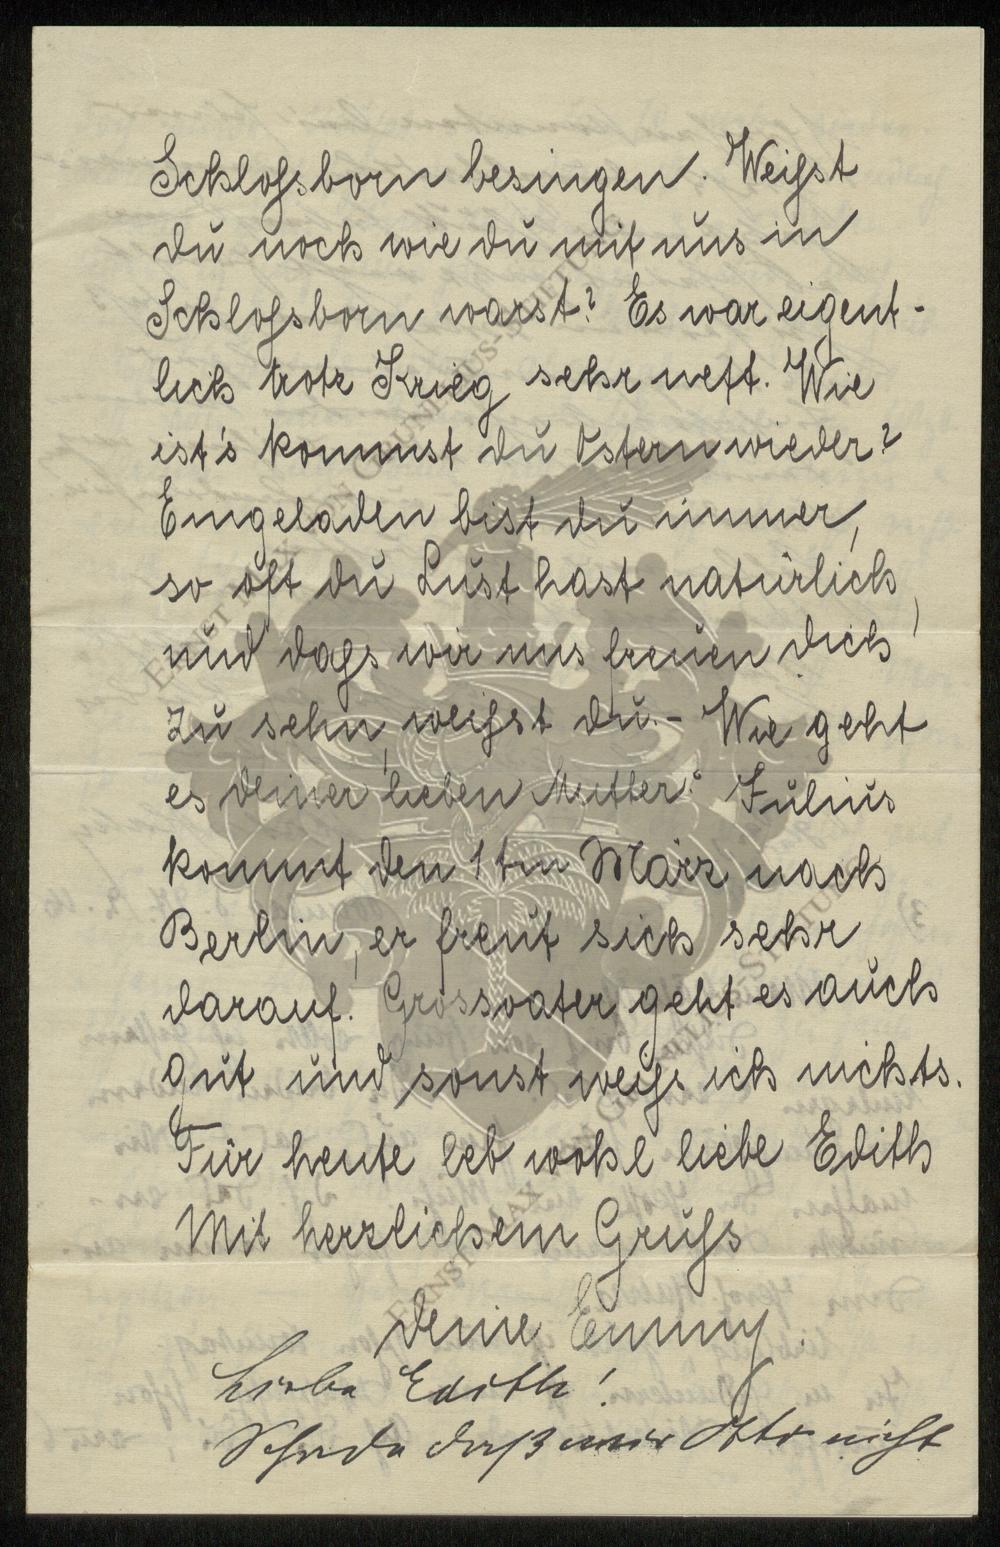 Schlofsborn besingen. Weifst
du noch wie du mit uns in
Schlofsborn warst? Es war eigent-
lich trotz Krieg sehr nett. Wie
ist's kommst du Ostern wieder?
Eingeladen bist du immer,
so oft du Lust hast natürlich,
und dafs wir uns freuen dich
zu sehn, weifst du.- Wie geht
es deiner lieben Mutter? Julius
kommt den 1ten März nach
Berlin, er freut sich sehr
darauf. Grossvater geht es auch
gut und sonst weifs ich nichts.
Für heute leb wohl liebe Edith
Mit herzlichem Grufs
deine Emmy.
Liebe Edith!
Schade daß wir Otto nicht
ERNST MAX VON GRUNELIUS-STIFTUNG
ERNST MAX VON GRUNELIUS-STIFTUNG